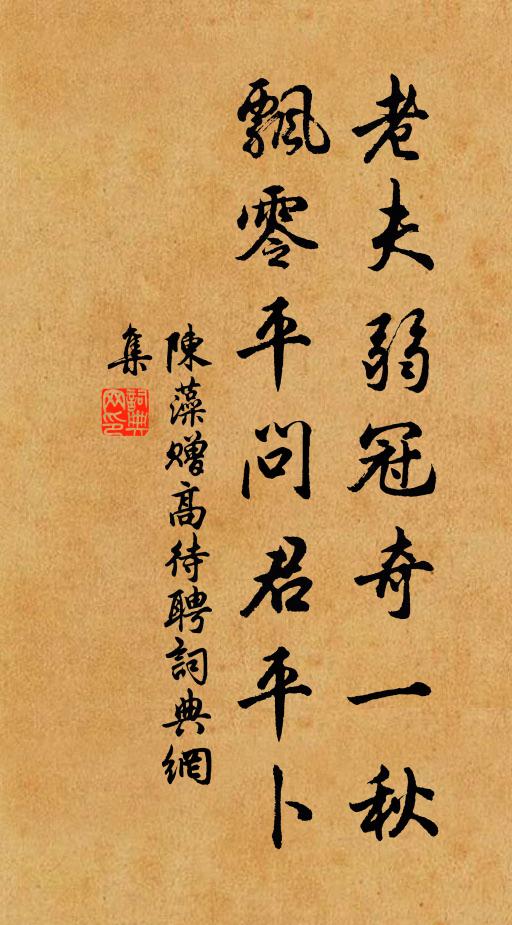 老夫弱冠奇一秋
飄零平問君平卜
陳藻赠高待聘詞典網
集
詞典网印